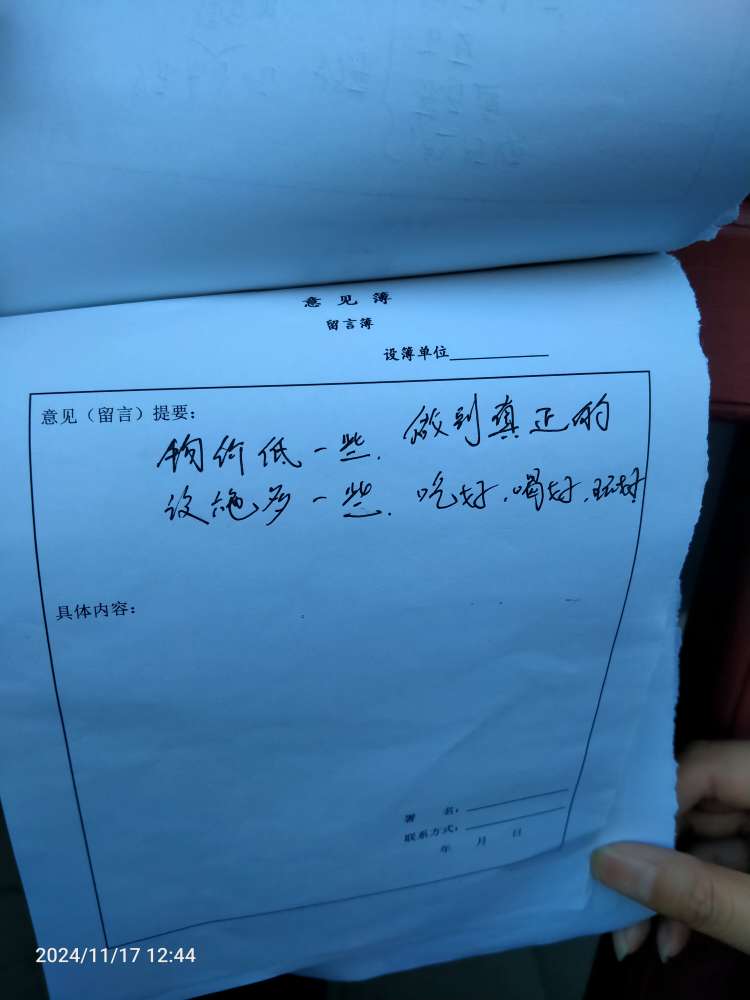 意见簿
留言簿
设簿单位
意见（留言）提要：
价低一些.做到真正的
设施多一些.吃好.喝好.玩好
具体内容：
署 名：
联系方式：
年 月 日
2024/11/17 12:44